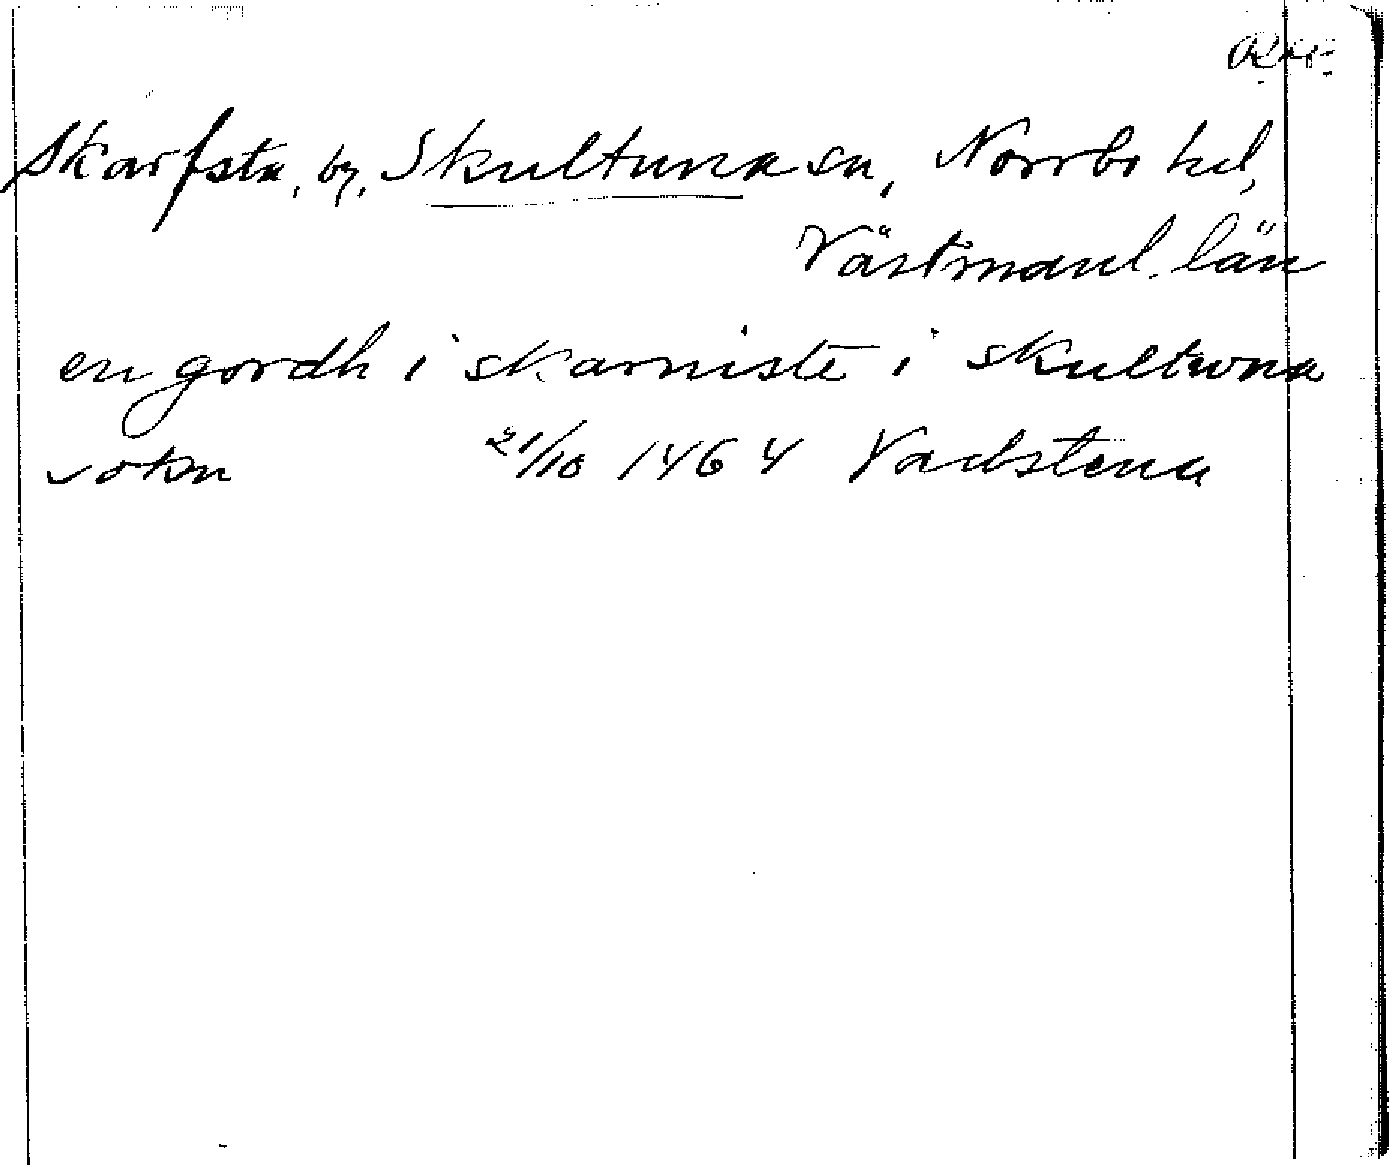 Skarfsta, by, Skultuna sn, Norrbo hd,
Västmanl. län
en gordh i skarniste i skultwna
sokn 21/10 1464 Vadstena